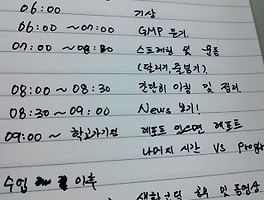 06:00 기상
06:00 ~ 07:00 GMP 듣기
07:00 ~ 08:30 스트레칭 및 운동
(달리기, 줄넘기)
08:00 ~ 08:30 간단히 아침 및 정리
08:30 ~ 09:00 News 보기!
09:00 ~ 학교가기전 레포트 있으면 레포트
나머지 시간 VS Progr
수업 이후
생활코딩 및 동영상